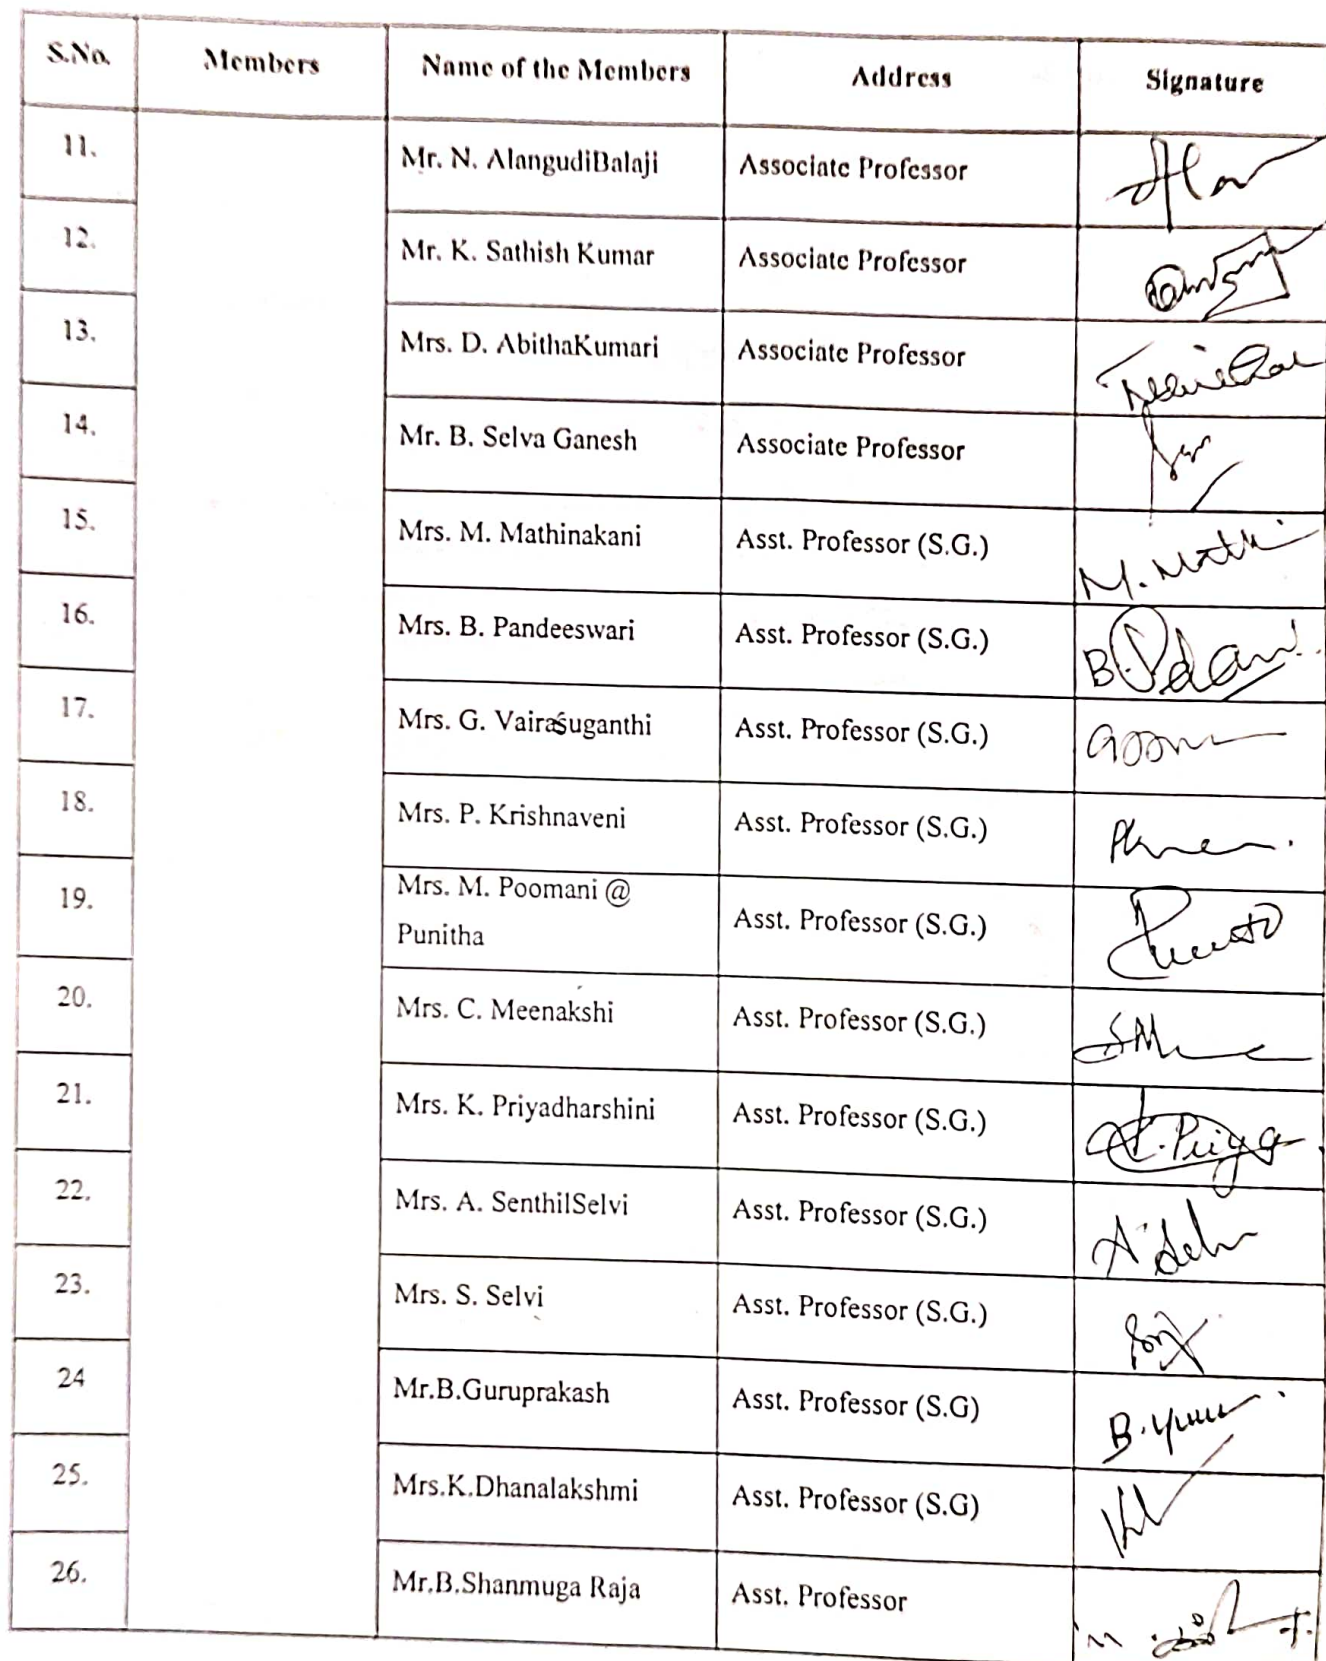 S.No. Members Name of the Members Address Signature
11. Mr. N. AlangudiBalaji Associate Professor
12. Mr. K. Sathish Kumar Associate Professor
13. Mrs. D. AbithaKumari Associate Professor
14. Mr. B. Selva Ganesh Associate Professor
15. Mrs. M. Mathinakani Asst. Professor (S.G.) M. Mathi
16. Mrs. B. Pandeeswari Asst. Professor (S.G.)
17. Mrs. G. Vairasuganthi Asst. Professor (S.G.)
18. Mrs. P. Krishnaveni Asst. Professor (S.G.)
19. Mrs. M. Poomani @
Punitha Asst. Professor (S.G.)
20. Mrs. C. Meenakshi Asst. Professor (S.G.)
21. Mrs. K. Priyadharshini Asst. Professor (S.G.) K. Priya
22. Mrs. A. SenthilSelvi Asst. Professor (S.G.)
23. Mrs. S. Selvi Asst. Professor (S.G.)
24 Mr.B.Guruprakash Asst. Professor (S.G)
25. Mrs.K.Dhanalakshmi Asst. Professor (S.G)
26. Mr.B.Shanmuga Raja Asst. Professor